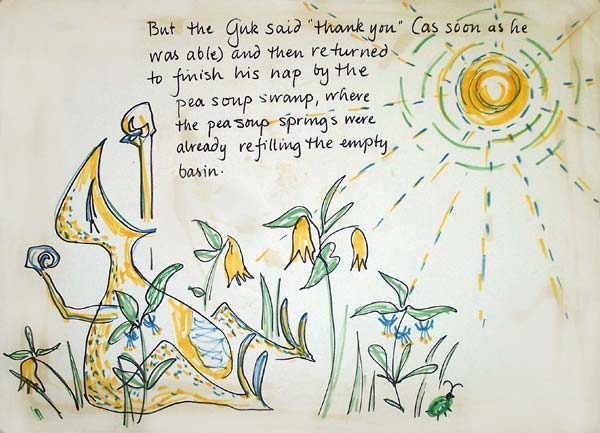 But the Guk said "thank you" (as soon as he
was able) and then returned
to finish his nap by the
pea soup swamp, where
the pea soup springs were
already refilling the empty
basin.